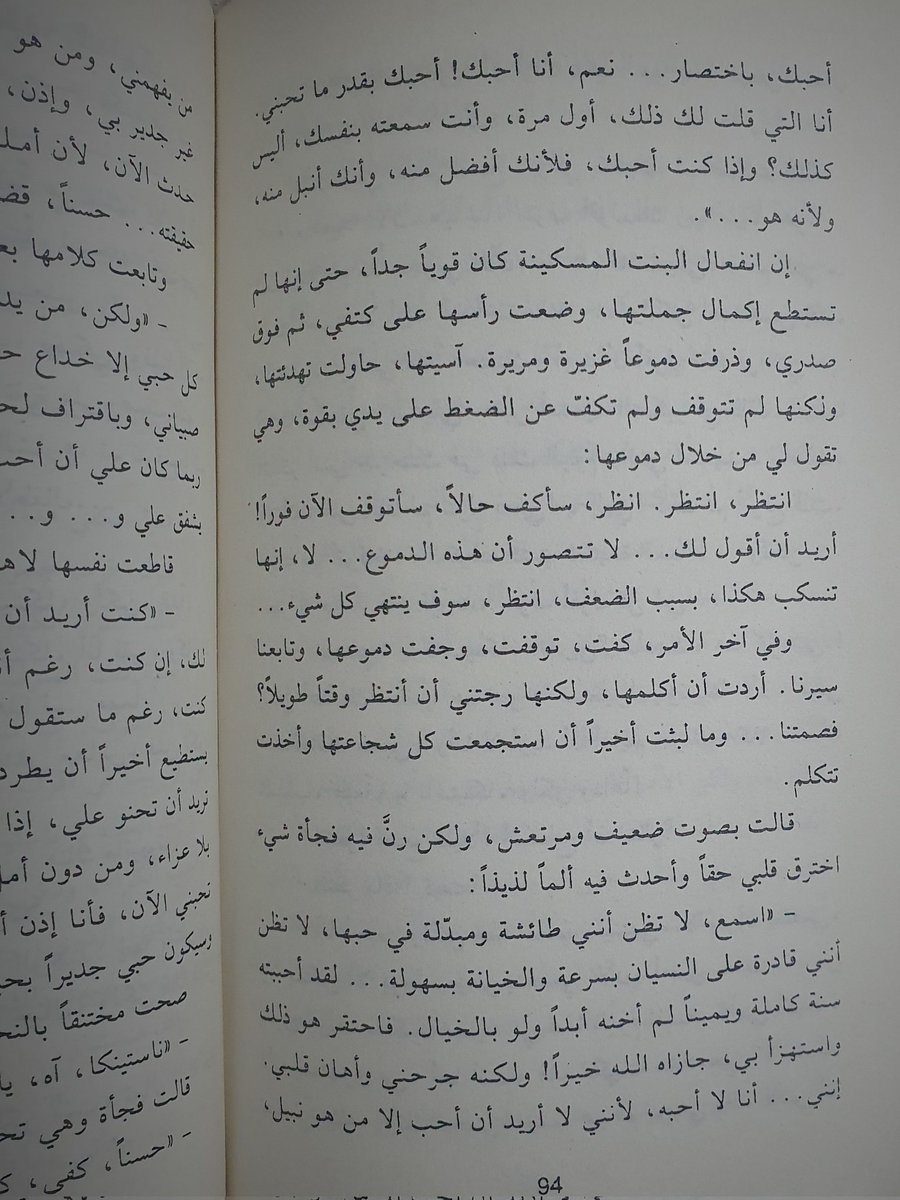 أحبك، باختصار... نعم، أنا أحبك! أحبك بقدر ما تحبني.
أنا التي قلت لك ذلك، أول مرة، وأنت سمعته بنفسك، أليس
كذلك؟ وإذا كنت أحبك، فلأنك أفضل منه، وأنك أنبل منه،
ولأنه هو...».
إن انفعال البنت المسكينة كان قوياً جداً، حتى إنها لم
تستطع إكمال جملتها، وضعت رأسها على كتفي، ثم فوق
صدري، وذرفت دموعاً غزيرة ومريرة. آسيتها، حاولت تهدئتها،
ولكنها لم تتوقف ولم تكفّ عن الضغط على يدي بقوة، وهي
تقول لي من خلال دموعها:
انتظر، انتظر. انظر، سأكف حالاً، سأتوقف الآن فوراً!
أريد أن أقول لك... لا تتصور أن هذه الدموع... لا، إنها
تنسكب هكذا، بسبب الضعف، انتظر، سوف ينتهي كل شيء...
وفي آخر الأمر، كفت، توقفت، وجفت دموعها، وتابعنا
سيرنا. أردت أن أكلمها، ولكنها رجتني أن أنتظر وقتاً طويلاً؟
فصمتنا... وما لبثت أخيراً أن استجمعت كل شجاعتها وأخذت
تتكلم.
قالت بصوت ضعيف ومرتعش، ولكن رنَّ فيه فجأة شيء
اخترق قلبي حقاً وأحدث فيه ألماً لذيذاً:
- «اسمع، لا تظن أنني طائشة ومبدّلة في حبها، لا تظن
أنني قادرة على النسيان بسرعة والخيانة بسهولة... لقد أحببته
سنة كاملة ويميناً لم أخنه أبداً ولو بالخيال. فاحتقر هو ذلك
واستهزأ بي، جازاه الله خيراً! ولكنه جرحني وأهان قلبي.
إنني... أنا لا أحبه، لأنني لا أريد أن أحب إلا من هو نبيل،
94
من يفهمني، ومن هو
غير جدير بي، وإذن،
حدث الآن، لأن
حقيقته... حسناً،
وتابعت كلامها
- «ولكن، من
كل حبي إلا خداع
صبياني، وباقتراف
ربما كان علي أن
يشفق علي و... و..
قاطعت نفسها
- «كنت أريد أن
لك، إن كنت، رغم
كنت، رغم ما ستقول
يستطيع أخيراً أن
تريد أن تحنو علي، إذا
بلا عزاء، ومن دون
تحبني الآن، فأنا إذن
وسيكون حبي جديراً
صحت مختنقاً
- «ناستينكا، آه، يا
قالت فجأة وهي
- «حسناً، كفى،